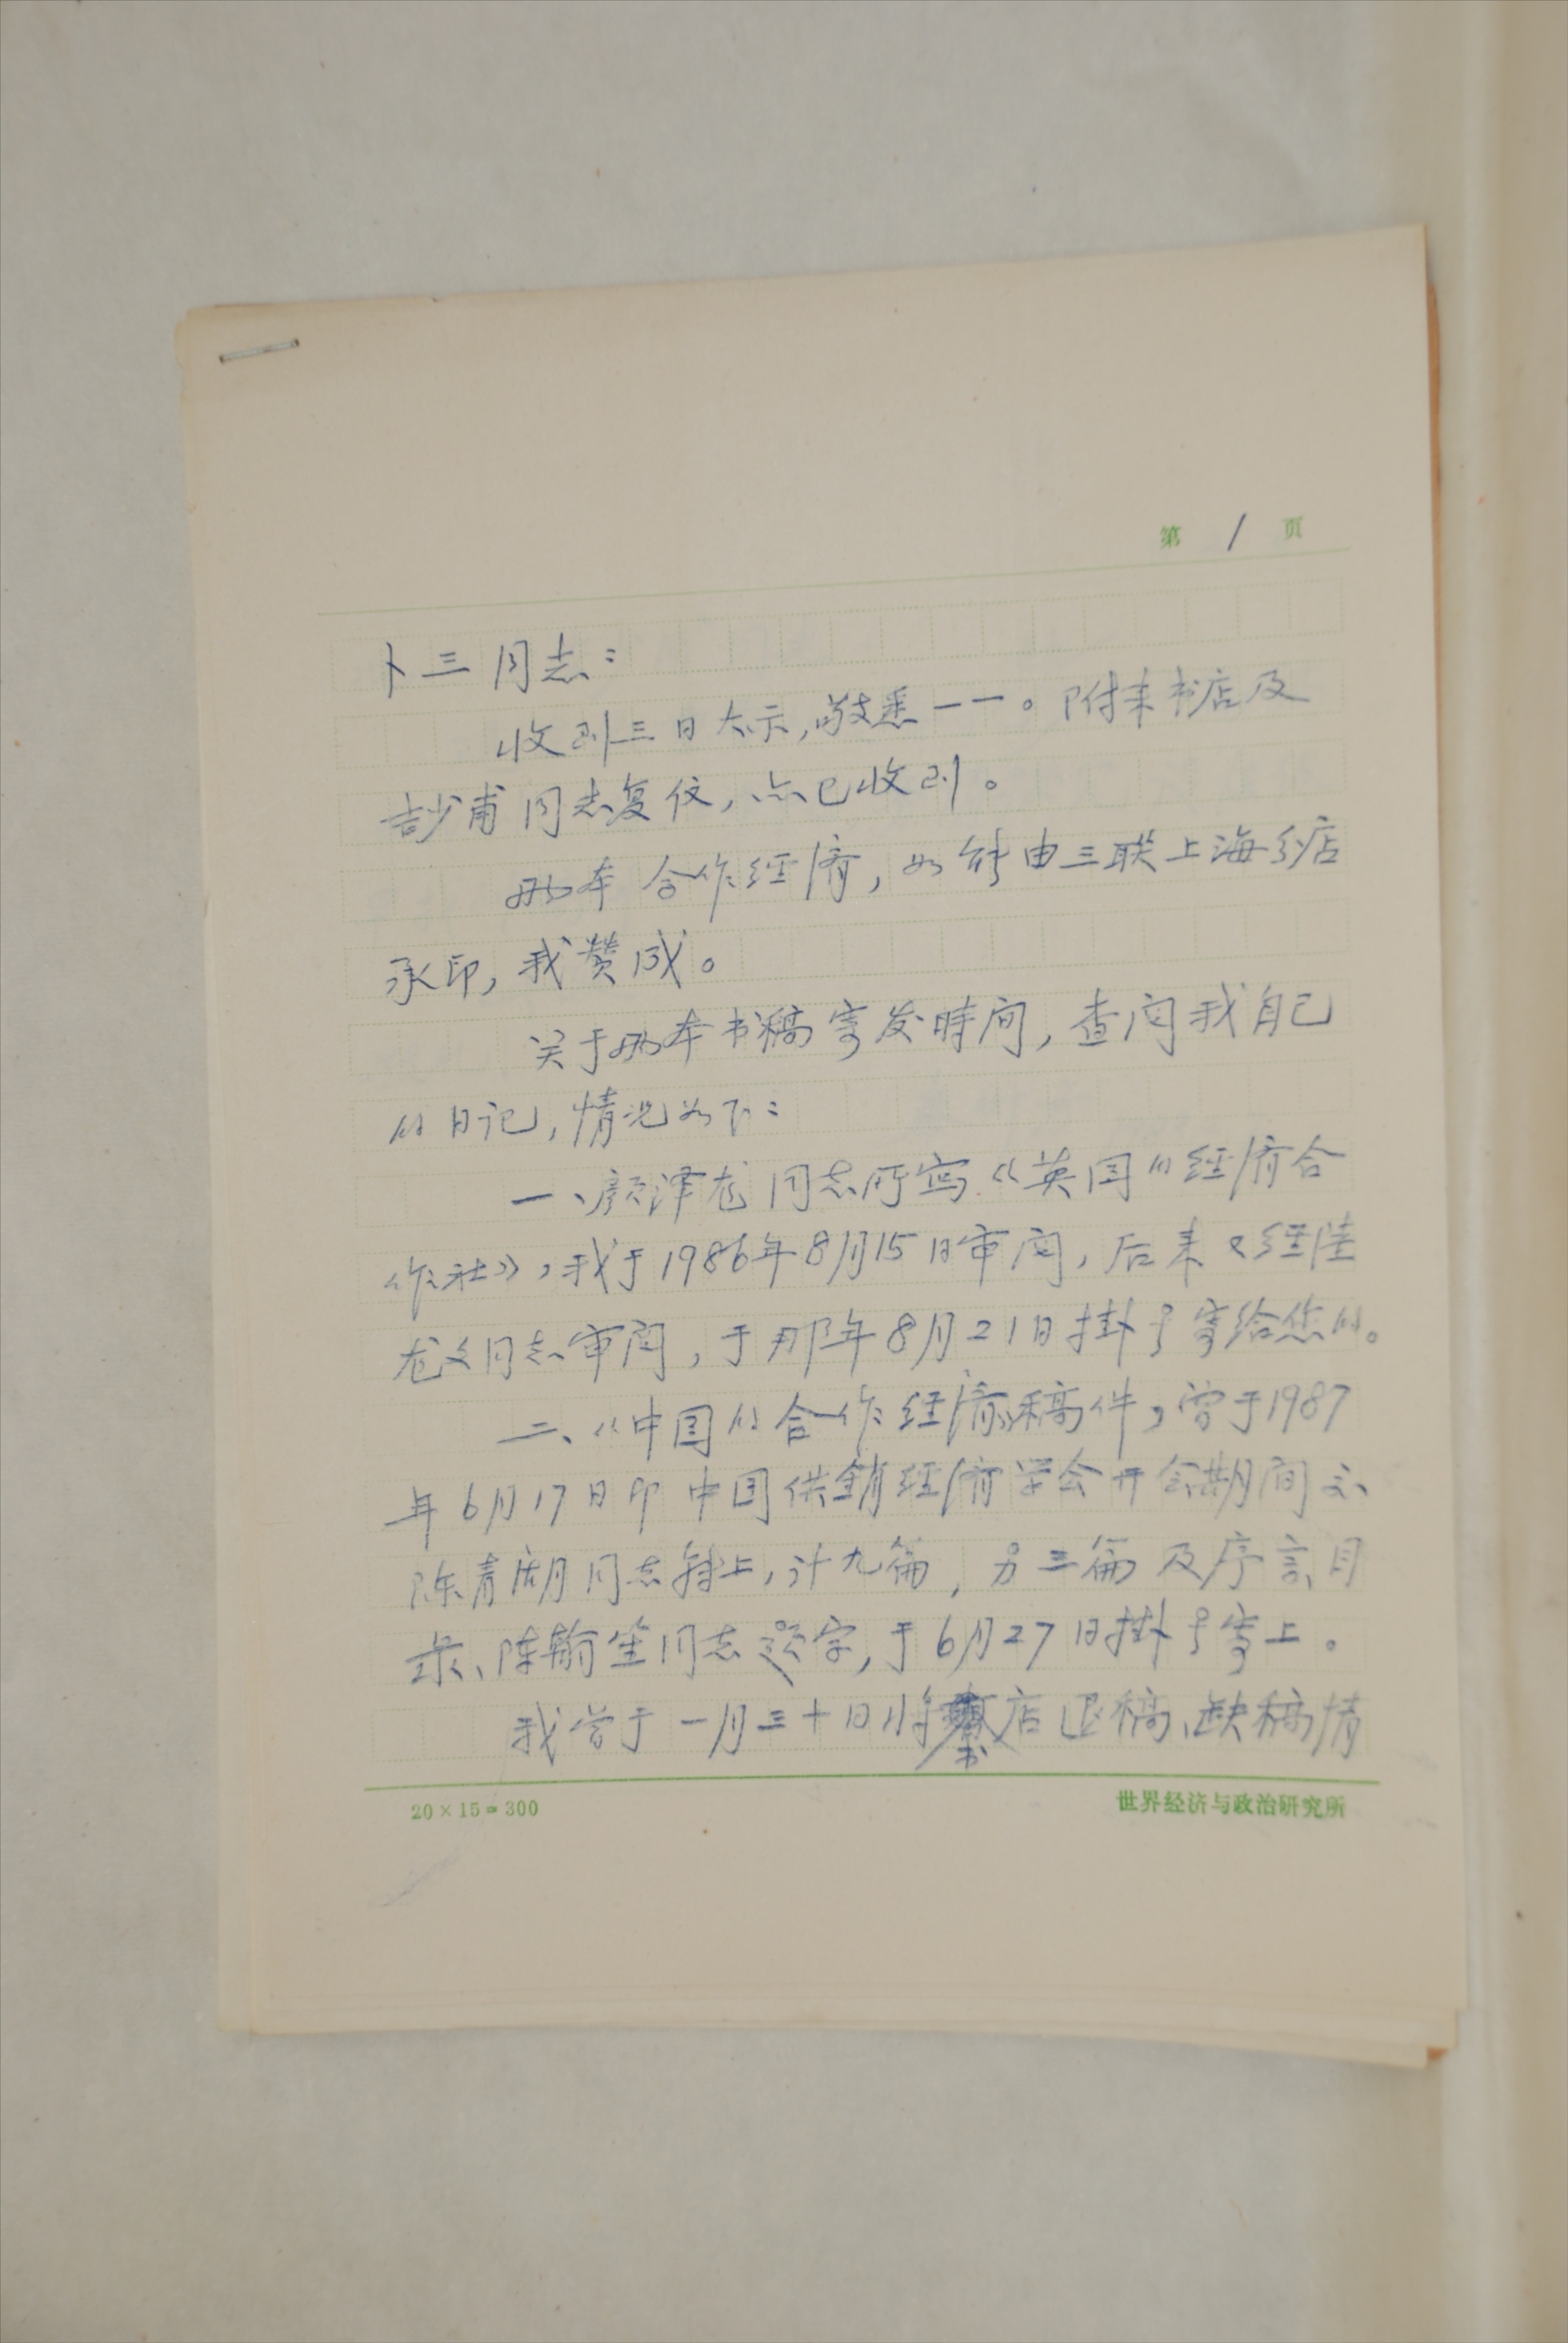 第 1 页
卜三同志：
收到三日大示，敬悉一一。附来书店及
少甫同志复信，亦已收到。
两本合作经济，如能由三联上海分店
承印，我赞成。
关于两本书稿寄发時间，查阅我自己
的日记，情况如下：
一、颜泽龙同志所写《英国的经济合
作社》，我于1986年8月15日审阅，后来又经陆
龙文同志审阅，于那年8月21日掛号寄给您的。
二、《中国的合作经济》稿件，曾于1987
年6月17日即中国供銷经济学会开会期间交
陈青湖同志转上，计九篇，另三篇及序言、目
录、陈翰笙同志题字，于6月27日掛号寄上。
我曾于一月三十日将书店退稿、缺稿情
20×15=300
世界经济与政治研究所